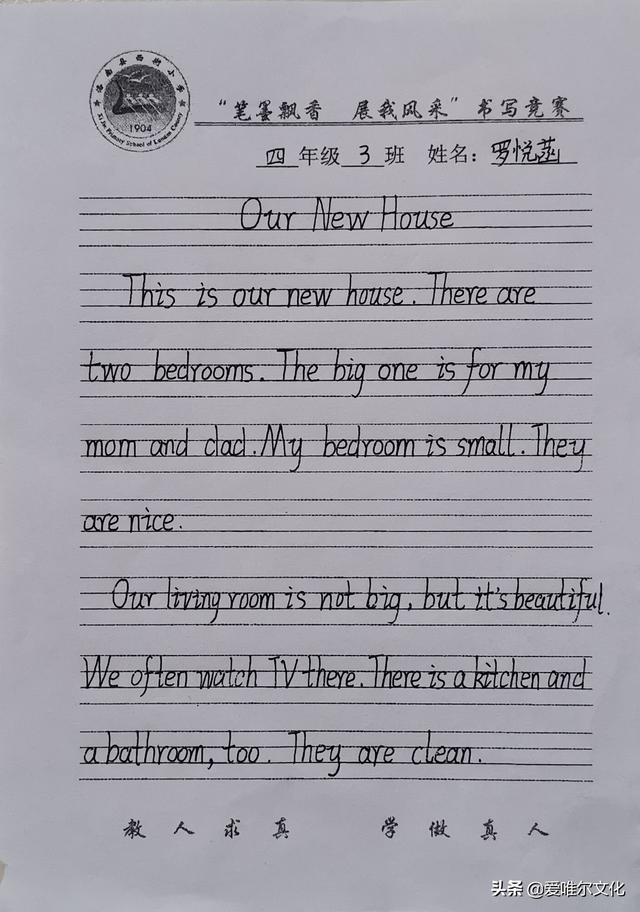 洛南县西街小学
1904
Xi Jie Primary School of Luonan County
“笔墨飘香 展我风采”书写竞赛
四年级 3 班 姓名：罗悦菡
Our New House
This is our new house. There are
two bedrooms. The big one is for my
mom and dad. My bedroom is small. They
are nice.
Our living room is not big, but it's beautiful.
We often watch TV there. There is a kitchen and
a bathroom, too. They are clean.
教人求真 学做真人
头条 @爱唯尔文化